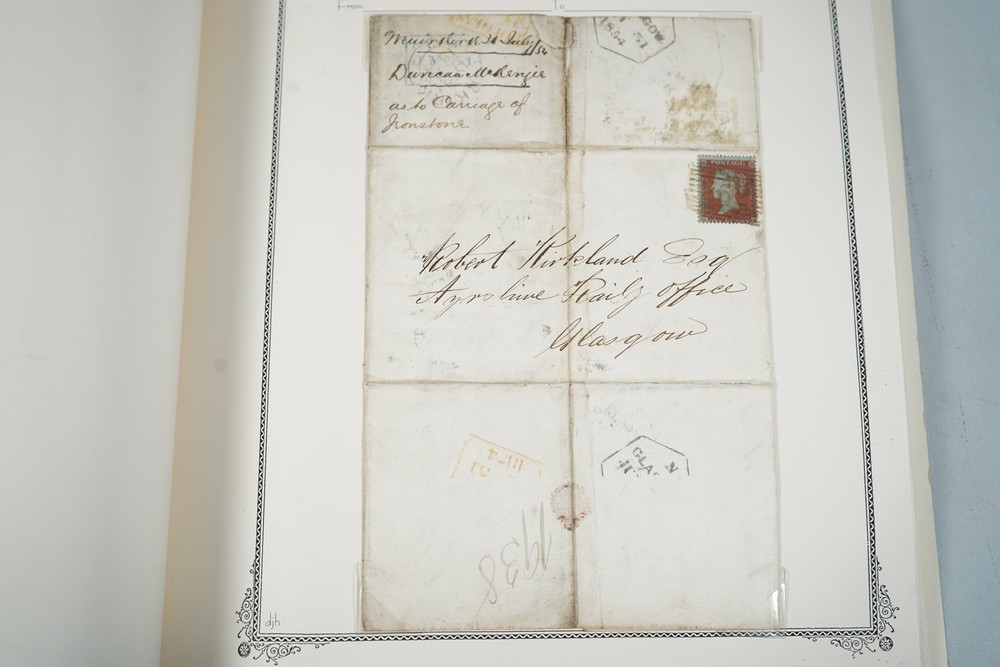 From
To
Muirkirk 31 July/54
Duncan McKenzie
as to Carriage of
Ironstone
GOW
31
1854
POSTAGE
Robert Kirkland Esq
Ayrshire Raily office
Glasgow
GLA N
1938
djh